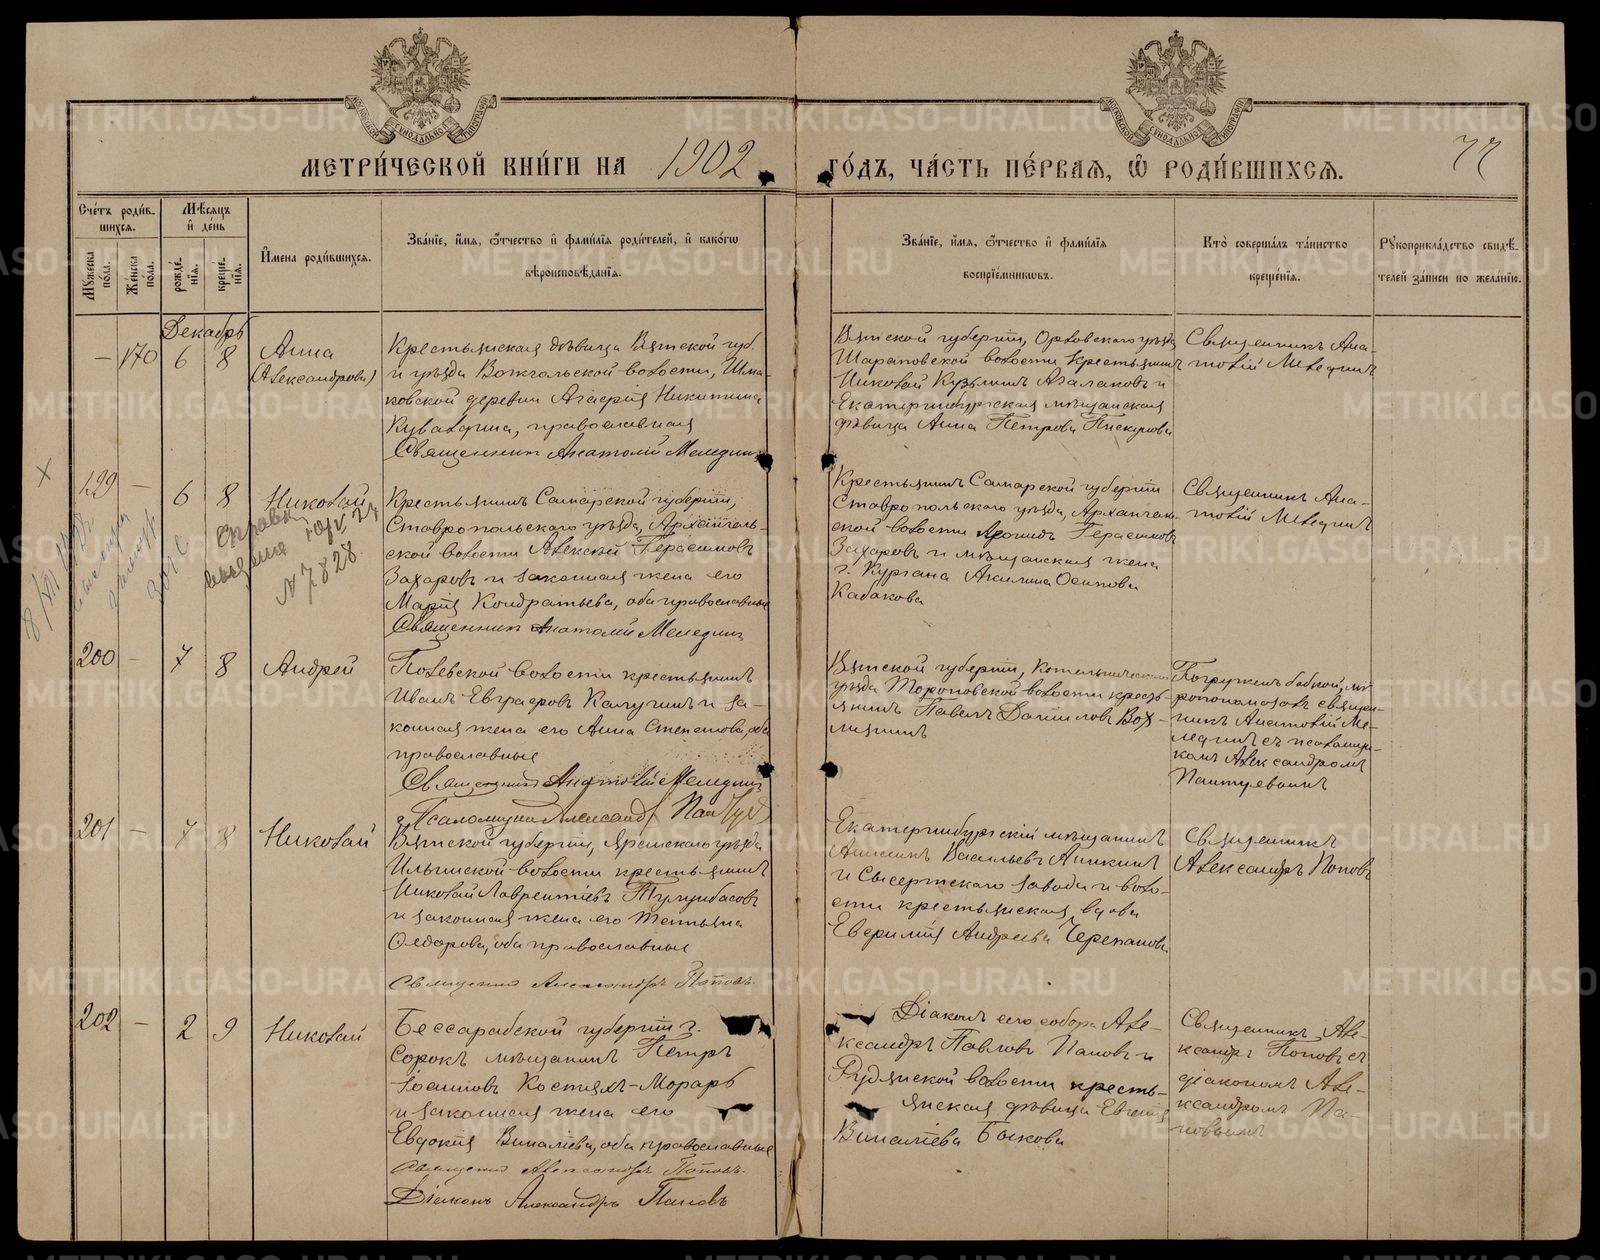 МЕТРИ́ЧЕСКОЙ КНИ́ГИ НА 1902
ГО́ДЪ, ЧА́СТЬ ПЕ́РВАѦ, Ѿ РОДИ́ВШИХСѦ. 77
Сче́тъ роди́вшихсѧ.
Мѣсѧцъ и҆ де́нь
И҆мена роди́вшихсѧ.
Зва́нїе, и҆́мѧ, ѻ҆́тчество и҆ фами́лїѧ роди́телей, и҆ како́гѡ
вѣроисповѣ́данїѧ.
Зва́нїе, и҆́мѧ, ѻ҆́тчество и҆ фами́лїѧ
воспрїе́мникѡвъ.
Кто̀ соверша́лъ та́инство
креще́нїѧ.
Рꙋкоприкла́дство свидѣ́-
телей за́писи по жела́нїю.
Мꙋжеска пола.
Же́нска пола.
рожде́нїѧ.
креще́нїѧ.
Декабрь
— 170 6 8
Анна
(Александрова)
Крестьянская дѣвица Вятской губ.
и уѣзда Вожгальской волости, Шма-
ковской деревни Агафія Никитина
Кувалдина, православная
Священник Анатолий Меледин
Вятской губерніи, Орловскаго уѣзда
Шараповской волости крестьянинъ
Николай Кузьминъ Агалаковъ и
Екатеринбургская мѣщанская
дѣвица Анна Петрова Пискунова
Священникъ Ана-
толій Мелединъ
199 — 6 8
Николай
справка
выдана
N 7828
Крестьянинъ Самарской губерніи,
Ставропольскаго уѣзда, Архангель-
ской волости Алексѣй Герасимовъ
Захаровъ и законная жена его
Марія Кондратьева, оба православные
Священник Анатолий Меледин
Крестьянинъ Самарской губерніи
Ставропольскаго уѣзда, Архангель-
ской волости Герасимовъ
Захаровъ и мѣщанская жена
г. Кургана Акилина Осипова
Кабакова
Священникъ Ана-
толій Мелединъ
200 — 7 8
Андрей
Полевской волости крестьянинъ
Иванъ Евграфовъ Калугинъ и за-
конная жена его Анна Степанова, оба
православные
Священник Анатолий Меледин
Псаломщик Александръ
Вятской губерніи, Котельническаго
уѣзда Тороповской волости кресть-
янинъ Павелъ Даниловъ
Погружилъ бабкой, мѵ-
ропомазалъ священ-
никъ Анатолій Ме-
лединъ съ псаломщи-
комъ Александромъ
201 — 7 8
Николай
Вятской губерніи, Яранскаго уѣзда
Ильинской волости крестьянинъ
Николай Лаврентіевъ Тулунбасовъ
и законная жена его Татьяна
Ѳедорова, оба православные
Священникъ Александръ Поповъ
Екатеринбургскій мѣщанинъ
Васильевъ Аникинъ
и Сысертскаго завода и воло-
сти крестьянская вдова
Андреева Черепанова
Священникъ
Александръ Поповъ
202 — 2 9
Николай
Бессарабской губерніи г.
Сорокъ мѣщанинъ Петръ
Іоанновъ Костяхъ-Мораръ
и законная жена его
Евдокія Виталіева, оба православные
Священникъ Александръ Поповъ
Діаконъ Александръ Пановъ
Діаконъ сего собора Але-
ксандръ Павловъ Пановъ и
Рудянской волости кресть-
янская дѣвица Евгенія
Виталіева Быкова
Священникъ Але-
ксандръ Поповъ съ
діакономъ Але-
ксандромъ Па-
новымъ
METRIKI.GASO-URAL.RU